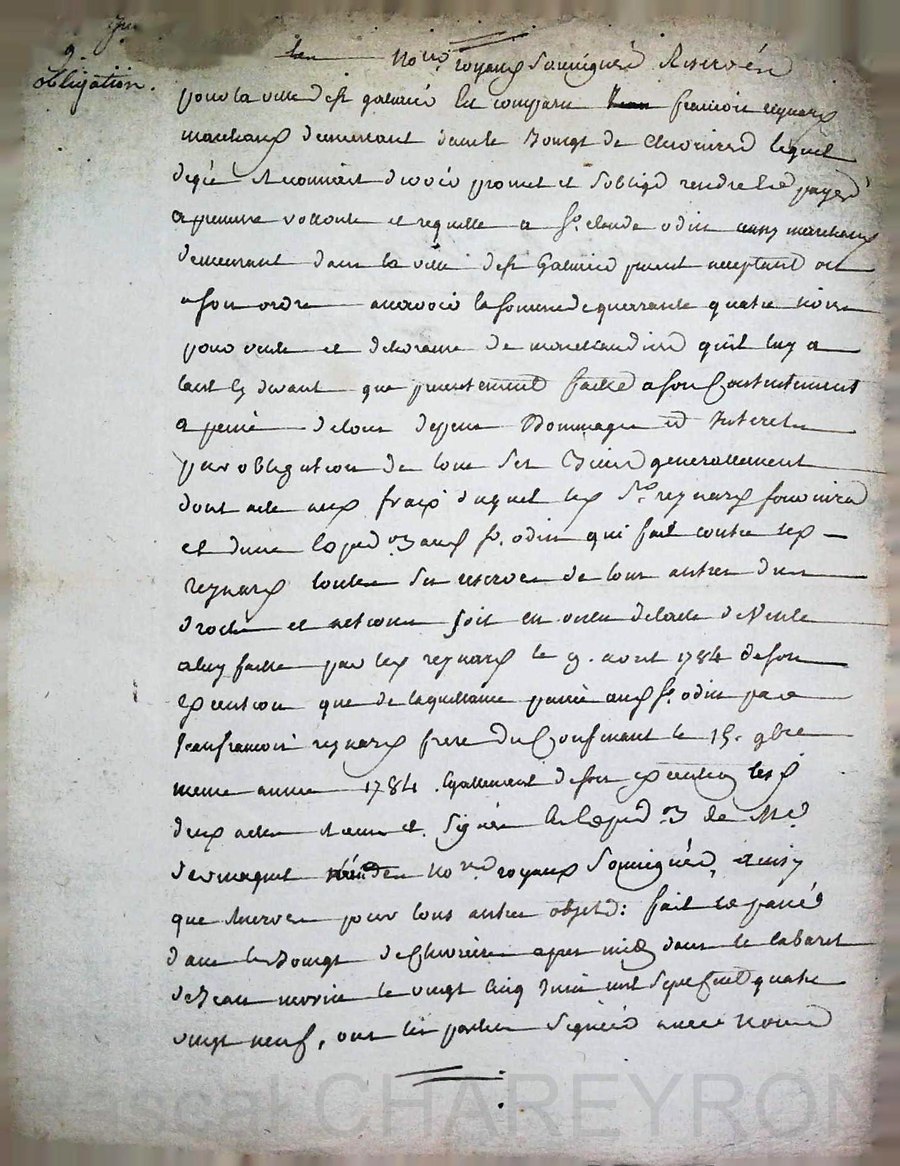 9.
obligation.
No.res royaux soussignés Reservés
pour la ville de st galmier Est comparu francois reynard
marchand demeurant dans le Bourg de Chevrieres lequel
de gré Reconnoit devoir promet et s'oblige rendre et payer
a premiere volonté et requette a Sr. claude odin aussy marchand
demeurant dans la ville de st Galmier present acceptant ou
a son ordre la somme de quarante quatre livres
pour vente et delivrance de marchandise qu'il luy a
tant cy devant que presentement faitte a son Contentement
a peine de tous depens Dommages et Interets
par obligation de tous ses Biens generallement
dont acte aux frais duquel led Sr. reynard fournira
et d'une Exped.on aud Sr. odin qui fait contre led
reynard toutes ses reserves de tous autres dus
droits et actions soit en vertu de l'acte de Vente
a luy faitte par led reynard le 9. aout 1784 de son
Execution que de la quittance passée aud Sr. odin par
Jean francois reynard frere du Confessant le 15. 9bre
meme année 1784. Egallement de son Execution lesd
deux actes recus et signés En Exped.on de Me
l'un des No.res royaux soussignés, ainsy
que Reserves pour tous autres objets: fait et passé
dans le Bourg de Chevrieres apres midy dans le Cabaret
de Jean le vingt cinq Juin mil sept Cent quatre
vingt neuf, ont les parties signées avec Nous
Pascal CHAREYRON